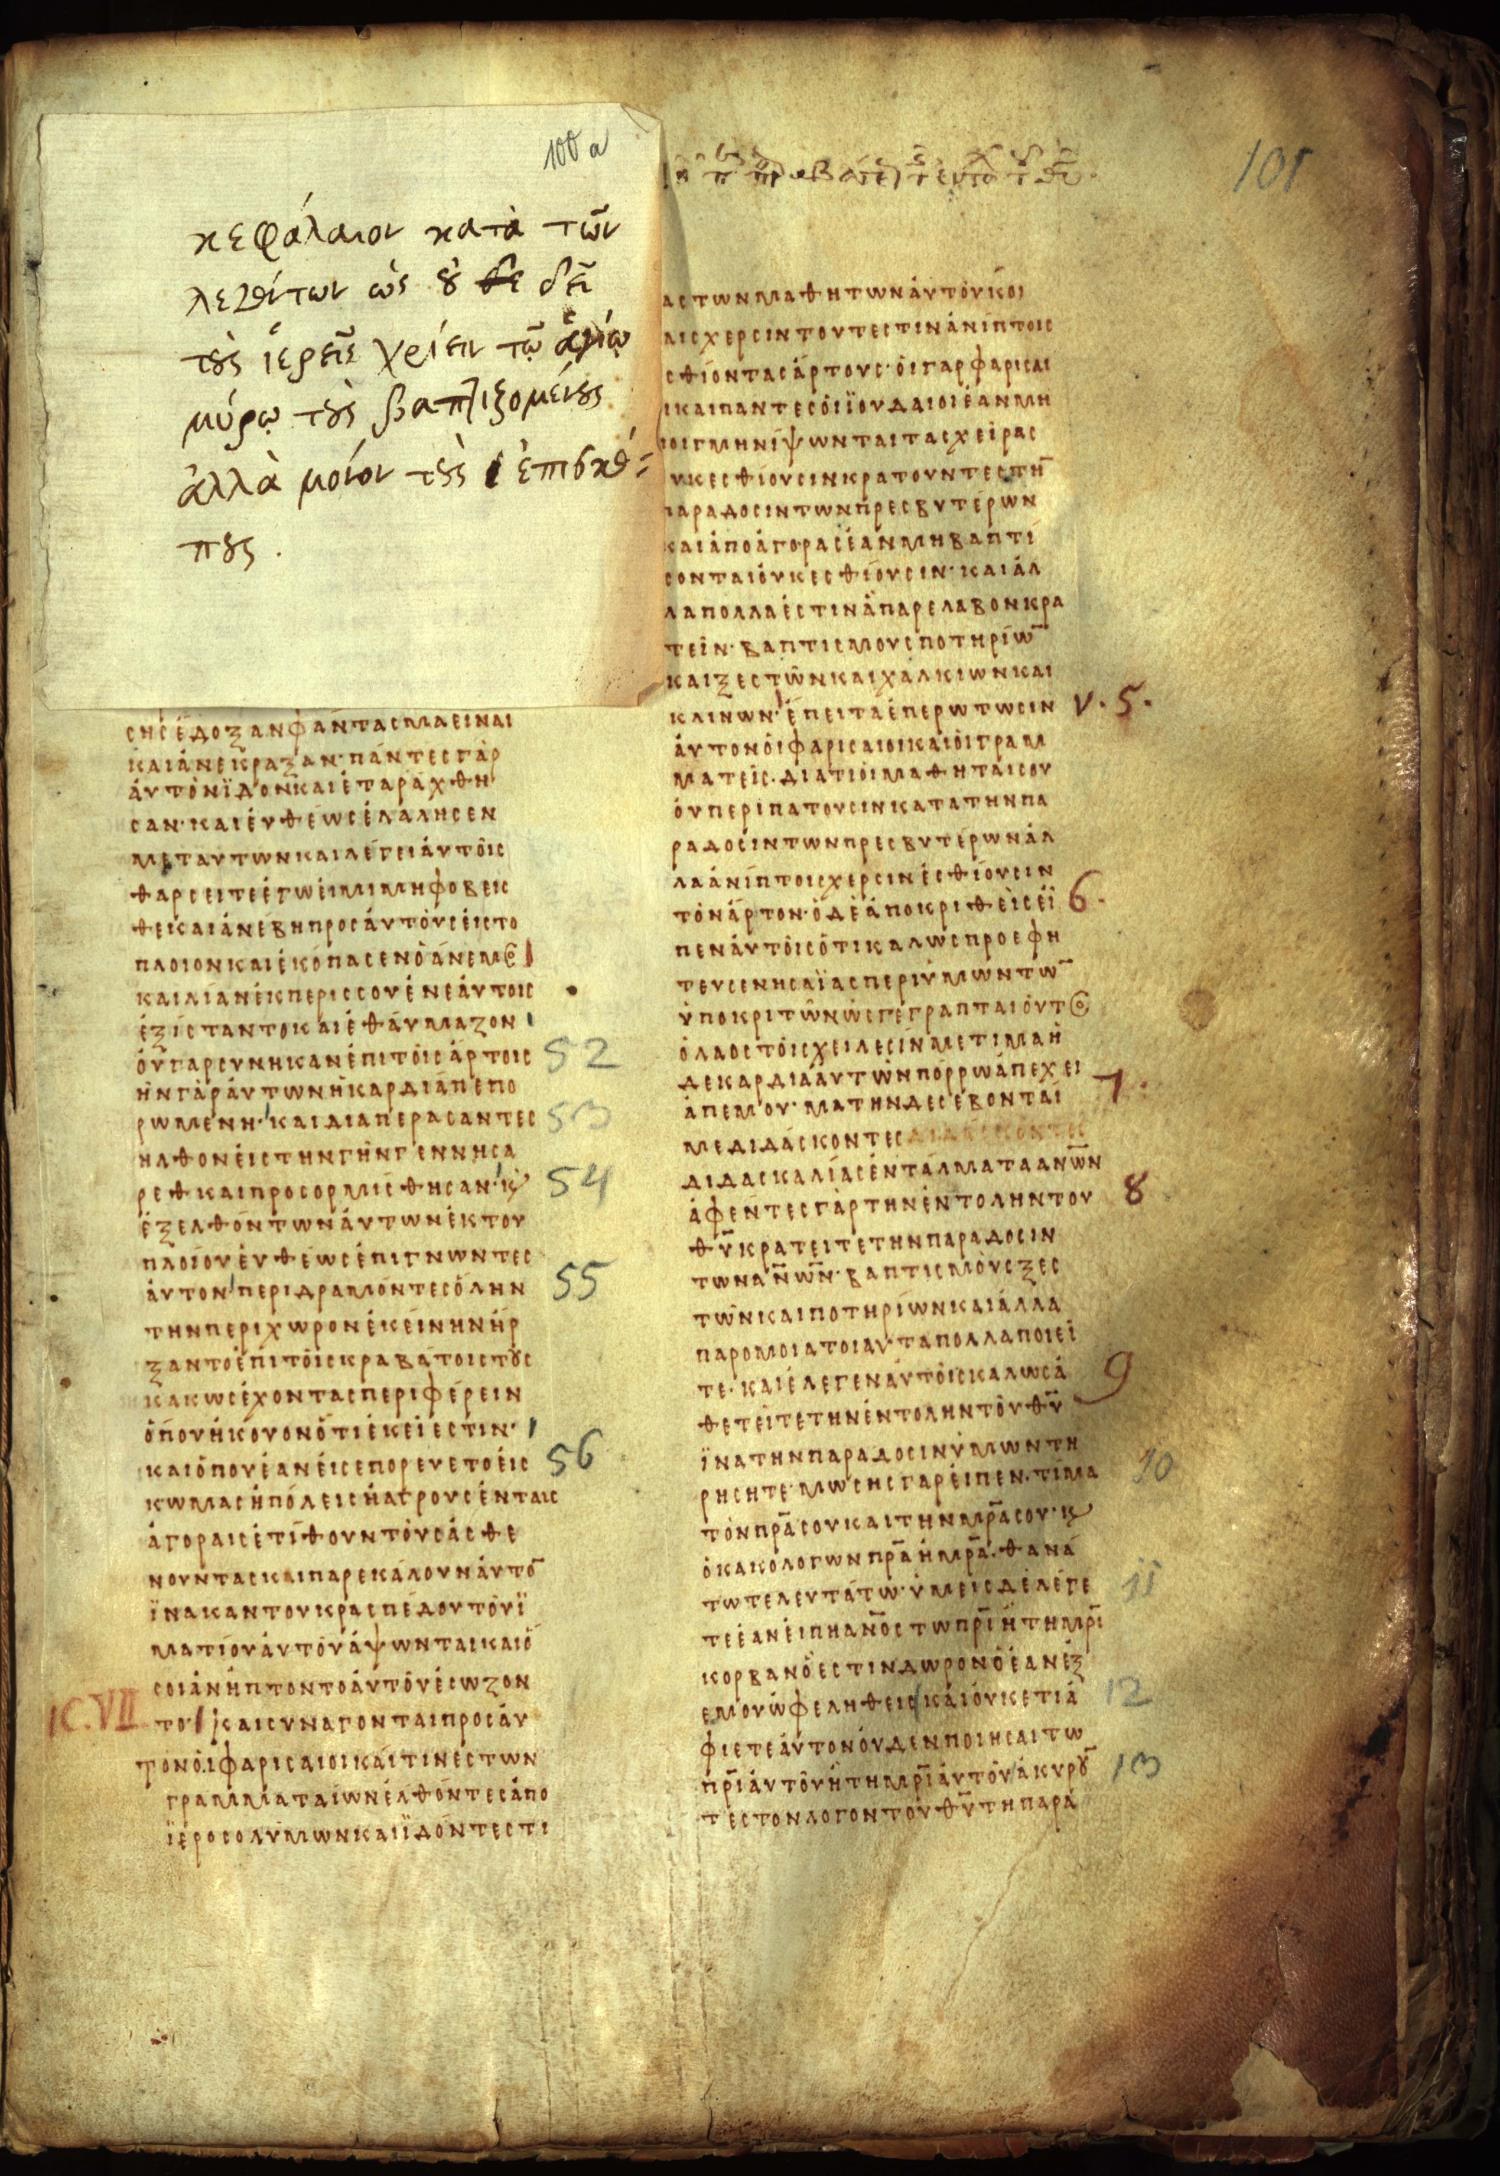 100 a
κεφάλαιον κατὰ τῶν
λεχθέντων ὡς ȣ̓ δεῖ
τȣ̀ς ἱερεῖς χρίειν τῷ ἁγίῳ
μύρῳ τȣ̀ς βαπτιζομένȣς
ἀλλὰ μόνον τȣ̀ς ἐπισκό=
πȣς .
101
ϲηϲ ἐδοξαν φάνταϲμα ειναι
και ἀνεκραξαν· πάντεϲ γὰρ
ἀυτὸν ϊδον και ἐταραχθη
ϲαν· και ἐυθέωϲ ἐλαληϲεν
μετ αυτων και λέγει ἀυτοῖϲ
θαρϲειτε ἐγώ ἐιμι μη φοβειϲ
θει και ἀνεβη προϲ ἀυτὸυϲ ἐιϲ το
πλοιον και ἐκόπαϲεν ὁ ἄνεμοϲ
και λίαν ἐκ περιϲϲου ἐν ἑαυτοιϲ
ἐξίϲταντο και ἐθάυμαζον
ὀυ γαρ ϲυνηκαν ἐπι τοῖϲ ἄρτοιϲ
52
ἠν γὰρ ἀυτων ἡ καρδιά πεπο
ρωμενη· και διαπεραϲαντεϲ
53
ηλθον ἐιϲ την γῆν γεννηϲα
ρεθ και προϲορμίϲθηϲαν· ϗ
54
ἐξελθόντων ἀυτων ἐκ του
πλοίου ἐυθέωϲ ἐπιγνωντεϲ
ἀυτον περιδραμόντεϲ ὅλην
55
την περιχωρον ἐκείνην ἤρ
ξαντο ἐπι τοῖϲ κραβάτοιϲ τȣϲ
κακωϲ ἔχονταϲ περιφέρειν
ὅπου ἠκόυον ὅτι ἐκεῖ ἐϲτιν·
και ὅπου ἐαν ἐιϲεπορευετο ἐιϲ
56
κωμαϲ ἠ πόλειϲ ἠ αγρουϲ ἐν ταιϲ
ἀγοραιϲ ἐτίθουν τὸυϲ ἀϲθε
νουνταϲ και παρεκάλουν ἀυτο̅
ϊνα καν του κραϲπέδου τȏυ ϊ
ματίου ἀυτȏυ ἅψωνται και ὅ
ϲοι ἀν ήπτοντο ἀυτȏυ ἐϲωζον
IC. VII
το· και ϲυναγονται προϲ ἀυ
τον ὁι φαριϲαιοι και τινεϲ των
γραμματαίων ἐλθόντεϲ ἀπο
ϊεροϲολύμων και ϊδόντεϲ τι
αϲ των μαθητων ἀυτȏυ κοι
αιϲ χερϲιν τουτεϲτιν ἀνίπτοιϲ
ϲθίονταϲ ἄρτουϲ· ὁι γαρ φαριϲαι
ι και παντεϲ ὁι ϊουδαιοι ἐαν μη
οιγμη νίψωνται ταϲ χεῖραϲ
υκ εϲθίουϲιν κρατουντεϲ τη̅
παραδοϲιν των πρεϲβυτέρων
και ἀπο ἀγοραϲ ἐάν μη βαπτί
ϲονται ὀυκ εϲθίουϲιν· και ἀλ
λα πολλα ἐϲτιν ἃ παρελαβον κρα
τεῖν· βαπτιϲμουϲ ποτηρίω̅
και ξεϲτῶν και χαλκιων και
κλινων· ἐπειτα ἐπερωτωϲιν
v. 5.
ἀυτον ὁι φαριϲαιοι και ὁι γραμ
ματεῖϲ· διατι ὁι μαθηταί ϲου
ὀυ περιπατουϲιν κατα την πα
ραδοϲιν των πρεϲβυτέρων ἀλ
λα ἀνίπτοιϲ χερϲιν ἐϲθίουϲιν
τὸν ἄρτον· ὁ δὲ ἀποκριθεὶϲ εἶ
6.
πεν ἀυτοῖϲ ὅτι καλωϲ προεφη
τευϲεν ηϲαϊαϲ περι ὑμων τω̅
ὑποκριτῶν ὡϲ γέγραπται ὁυτοϲ
ὁ λαοϲ τοῖϲ χείλεϲίν με τιμα ἡ
δε καρδιά ἀυτῶν πόρρω ἀπέχει
7.
ἀπ εμου· ματην δε ϲέβονταί
με διδάϲκοντεϲ διδαϲκοντεϲ
διδαϲκαλίαϲ ἐντάλματα αν̅ω̅ν
ἀφεντεϲ γὰρ την ἐντολην του
8
θ̅υ̅ κρατειτε την παραδοϲιν
των αν̅ω̅ν· βαπτιϲμὸυϲ ξεϲ
τῶν και ποτηρίων και ἄλλα
παρομοια τοιαυτα πολλα ποιεῖ
τε· και ἐλεγεν ἀυτοῖϲ καλωϲ ἀ
9
θετεῖτε την ἐντολην τȏυ θ̅υ̅
ϊνα την παραδοϲιν ὑμων τη
ρηϲητε· μωϲηϲ γαρ ἐιπεν· τίμα
10
τὸν π̅ρ̅α̅ ϲου και την μ̅ρ̅α̅ ϲου· ϗ
ὁ κακολογων π̅ρ̅α̅ ἠ μ̅ρ̅α̅· θανά
τω τελευτάτω· ὑμειϲ δὲ λέγε
11
τε ἐαν ἐιπη αν̅ο̅ϲ τω π̅ρ̅ι̅ ἢ τη μ̅ρ̅ι̅
κορβαν ὅ εϲτιν δωρον ὃ ἐαν ἐξ
εμου ὠφεληθειϲ και ὀυκετι ἀ
12
φιετε ἀυτον ὀυδεν ποιηϲαι τω
π̅ρ̅ι̅ ἀυτȏυ ἠ τη μ̅ρ̅ι̅ ἀυτȏυ ἀκυρȣ̅
13
τεϲ τον λογον τȏυ θ̅υ̅ τη παρα